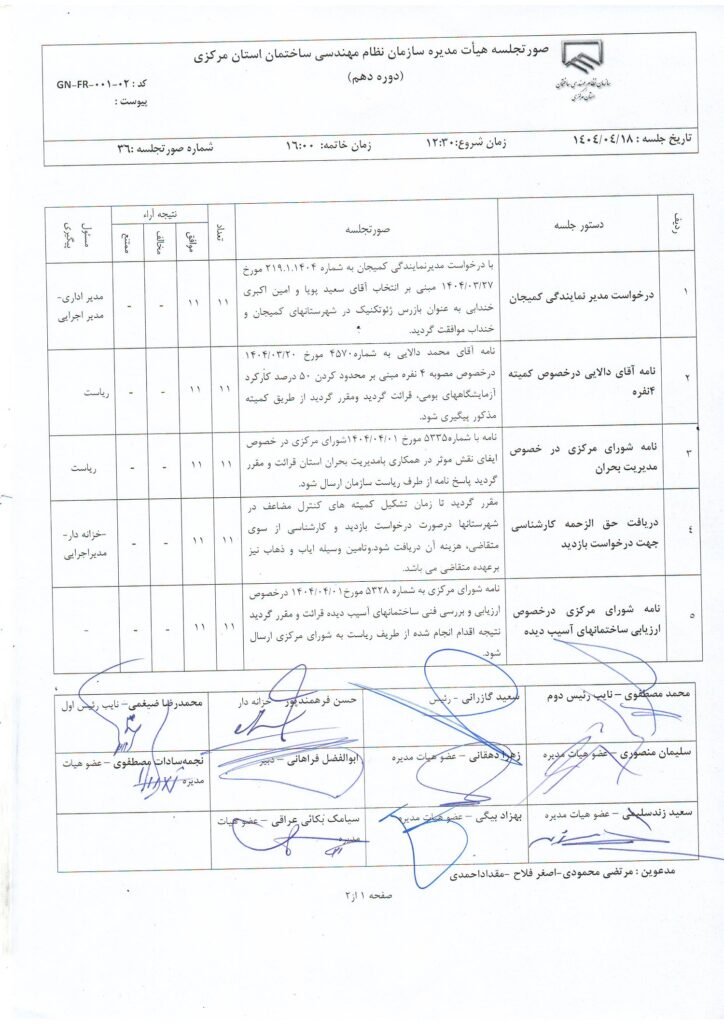 صورتجلسه هیأت مدیره سازمان نظام مهندسی ساختمان استان مرکزی
(دوره دهم)
سازمان نظام مهندسی ساختمان
استان مرکزی
کد : GN-FR-۰۰۱-۰۲
پیوست :
تاریخ جلسه : ۱۴۰۴/۰۴/۱۸ زمان شروع:۱۲:۳۰ زمان خاتمه: ۱۶:۰۰ شماره صورتجلسه :۳۶
ردیف دستور جلسه صورتجلسه تعداد نتیجه آراء مسئول پیگیری
موافق مخالف ممتنع
۱ درخواست مدیر نمایندگی کمیجان
با درخواست مدیرنمایندگی کمیجان به شماره ۲۱۹.۱.۱۴۰۴ مورخ
۱۴۰۴/۰۳/۲۷ مبنی بر انتخاب آقای سعید پویا و امین اکبری
خندابی به عنوان بازرس ژئوتکنیک در شهرستانهای کمیجان و
خنداب موافقت گردید.
۱۱ ۱۱ - -
مدیر اداری-
مدیر اجرایی
۲ نامه آقای دالایی درخصوص کمیته
۴نفره
نامه آقای محمد دالایی به شماره۴۵۷۰ مورخ ۱۴۰۴/۰۳/۲۰
درخصوص مصوبه ۴ نفره مبنی بر محدود کردن ۵۰ درصد کارکرد
آزمایشگاههای بومی، قرائت گردید ومقرر گردید از طریق کمیته
مذکور پیگیری شود.
۱۱ ۱۱ - - ریاست
۳ نامه شورای مرکزی در خصوص
مدیریت بحران
نامه با شماره۵۳۳۵ مورخ ۱۴۰۴/۰۴/۰۱شورای مرکزی در خصوص
ایفای نقش موثر در همکاری بامدیریت بحران استان قرائت و مقرر
گردید پاسخ نامه از طرف ریاست سازمان ارسال شود.
۱۱ ۱۱ - - ریاست
۴ دریافت حق الزحمه کارشناسی
جهت درخواست بازدید
مقرر گردید تا زمان تشکیل کمیته های کنترل مضاعف در
شهرستانها درصورت درخواست بازدید و کارشناسی از سوی
متقاضی، هزینه آن دریافت شود.وتامین وسیله ایاب و ذهاب نیز
برعهده متقاضی می باشد.
۱۱ ۱۱ - -
-خزانه دار-
مدیراجرایی
۵ نامه شورای مرکزی درخصوص
ارزیابی ساختمانهای آسیب دیده
نامه شورای مرکزی به شماره ۵۳۲۸ مورخ۱۴۰۴/۰۴/۰۱ درخصوص
ارزیابی و بررسی فنی ساختمانهای آسیب دیده قرائت و مقرر گردید
نتیجه اقدام انجام شده از طریف ریاست به شورای مرکزی ارسال
شود.
۱۱ ۱۱ - - -
محمد مصطفوی – نایب رئیس دوم سعید گازرانی – رئیس حسن فرهمندپور – خزانه دار محمدرضا ضیغمی – نایب رئیس اول
سلیمان منصوری – عضو هیات مدیره زهرا دهقانی – عضو هیات مدیره ابوالفضل فراهانی – دبیر نجمه‌سادات مصطفوی – عضو هیات
مدیره
سعید زندسلیمی – عضو هیات مدیره بهزاد بیگی – عضو هیات مدیره سیامک بکائی عراقی – عضو هیات
مدیره
مدعوین : مرتضی محمودی-اصغر فلاح -مقداداحمدی
صفحه ۱ از۲